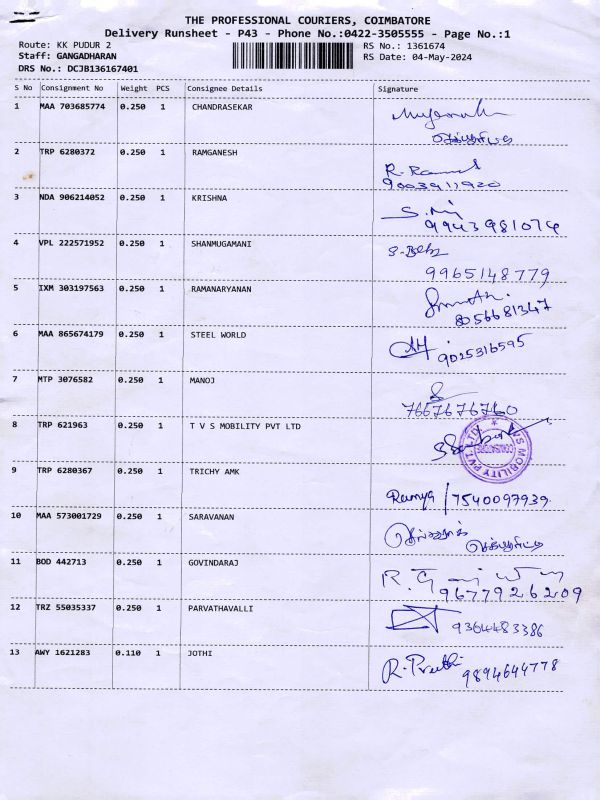 THE PROFESSIONAL COURIERS, COIMBATORE
Delivery Runsheet - P43 - Phone No.:0422-3505555 - Page No.:1
Route: KK PUDUR 2
RS No.: 1361674
Staff: GANGADHARAN
RS Date: 04-May-2024
DRS No.: DCJB136167401
S No Consignment No Weight PCS Consignee Details Signature
1 MAA 703685774 0.250 1 CHANDRASEKAR
2 TRP 6280372 0.250 1 RAMGANESH
9003911920
3 NDA 906214052 0.250 1 KRISHNA
9943981074
4 VPL 222571952 0.250 1 SHANMUGAMANI
9965148779
5 IXM 303197563 0.250 1 RAMANARYANAN
8056681347
6 MAA 865674179 0.250 1 STEEL WORLD
9025316595
7 MTP 3076582 0.250 1 MANOJ
7667676760
8 TRP 621963 0.250 1 T V S MOBILITY PVT LTD
9 TRP 6280367 0.250 1 TRICHY AMK
Ramya / 7540097939
10 MAA 573001729 0.250 1 SARAVANAN
11 BOD 442713 0.250 1 GOVINDARAJ
9677926209
12 TRZ 55035337 0.250 1 PARVATHAVALLI
9364483386
13 AWY 1621283 0.110 1 JOTHI
R. Preethi 9894644778